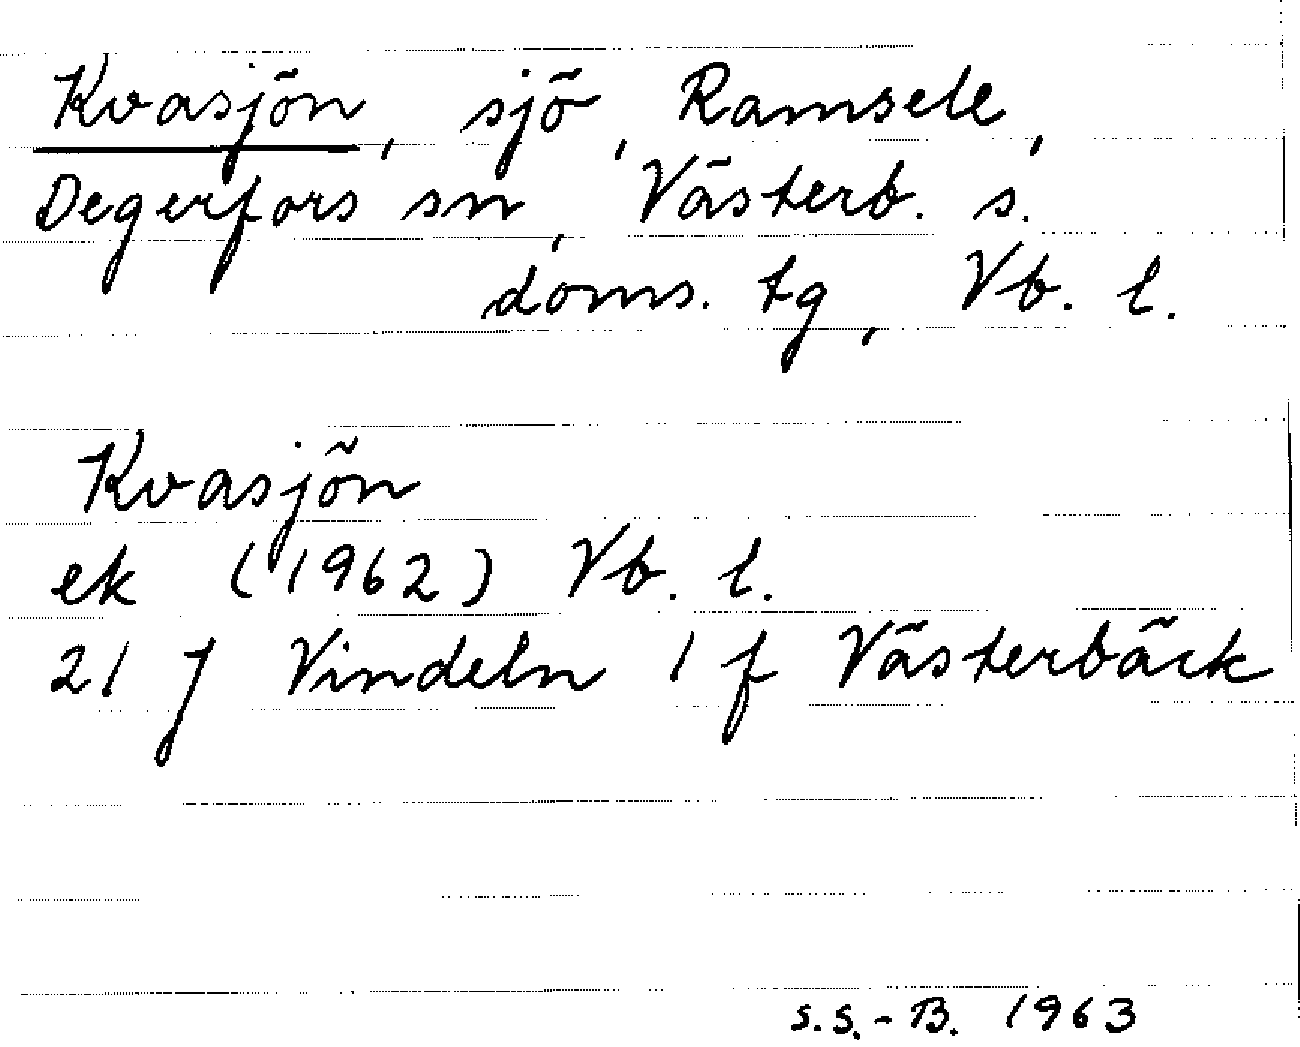 Kvasjön, sjö, Ramsele,
Degerfors sn, Västerb. s.
doms. tg, Vb. l.
Kvasjön
ek (1962) Vb. l.
21 J Vindeln 1 f Västerbäck
S.S.-B. 1963